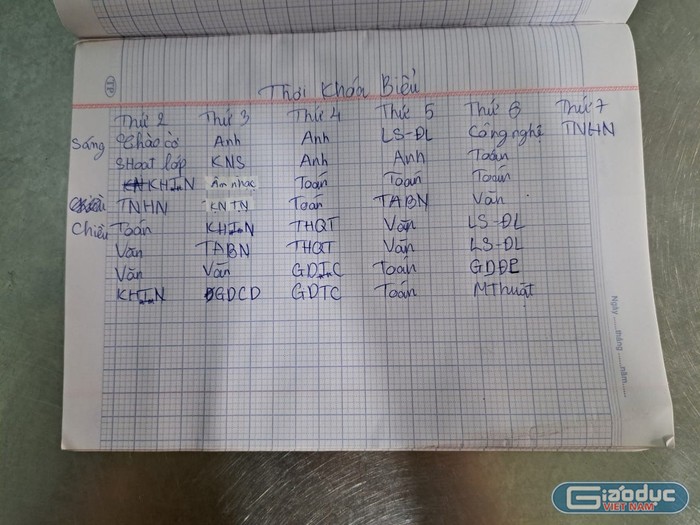 Thời Khóa Biểu
Thứ 2 Thứ 3 Thứ 4 Thứ 5 Thứ 6 Thứ 7
Sáng Chào cờ Anh Anh LS-ĐL Công nghệ TNHN
SHoạt lớp KNS Anh Anh Toán
KHTN Âm nhạc Toán Toán Toán
TNHN KNTN Toán TABN Văn
Chiều Toán KHTN THQT Văn LS-ĐL
Văn TABN THQT Văn LS-ĐL
Văn Văn GDTC Toán GDĐP
KHTN GDCD GDTC Toán MThuật
Ngày.....tháng.....năm.....
TP
Giáo dục
VIỆT NAM